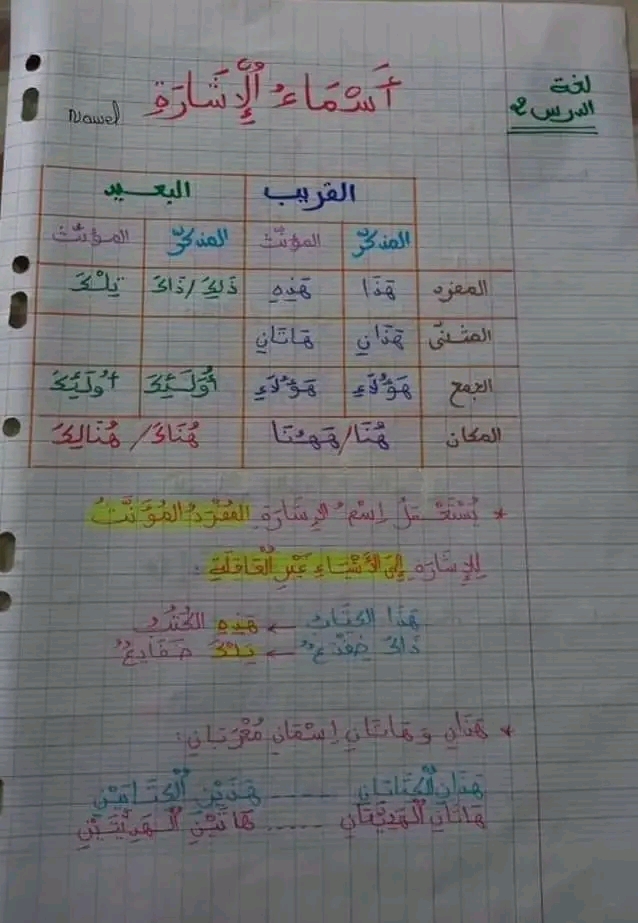 لغة
الدرس 2
أَسْمَاءُ الْإِشَارَةِ
Nawel
القريب البعيد
المذكّر المؤنّث المذكّر المؤنّث
المفرد هَذَا هَذِهِ ذَلِكَ/ذَاكَ تِلْكَ
المثنّى هَذَانِ هَاتَانِ
الجمع هَؤُلَاءِ هَؤُلَاءِ أُولَئِكَ أُولَئِكَ
المكان هُنَا/هَهُنَا هُنَاكَ/هُنَالِكَ
* يُسْتَعْمَلُ اِسْمُ الإِشَارَةِ المُفْرَدُ المُؤَنَّثُ
لِلإِشَارَةِ إِلَى الْأَشْيَاءِ غَيْرِ الْعَاقِلَةِ:
هَذَا الكِتَابُ ← هَذِهِ الكُتُبُ
ذَاكَ ضِفْدَعٌ ← تِلْكَ ضَفَادِعٌ
* هَذَانِ وَهَاتَانِ اِسْمَانِ مُعْرَبَانِ:
هَذَانِ الْكِتَابَانِ ..... هَذَيْنِ الْكِتَابَيْنِ
هَاتَانِ الْهَدِيَّتَانِ ..... هَاتَيْنِ الْهَدِيَّتَيْنِ